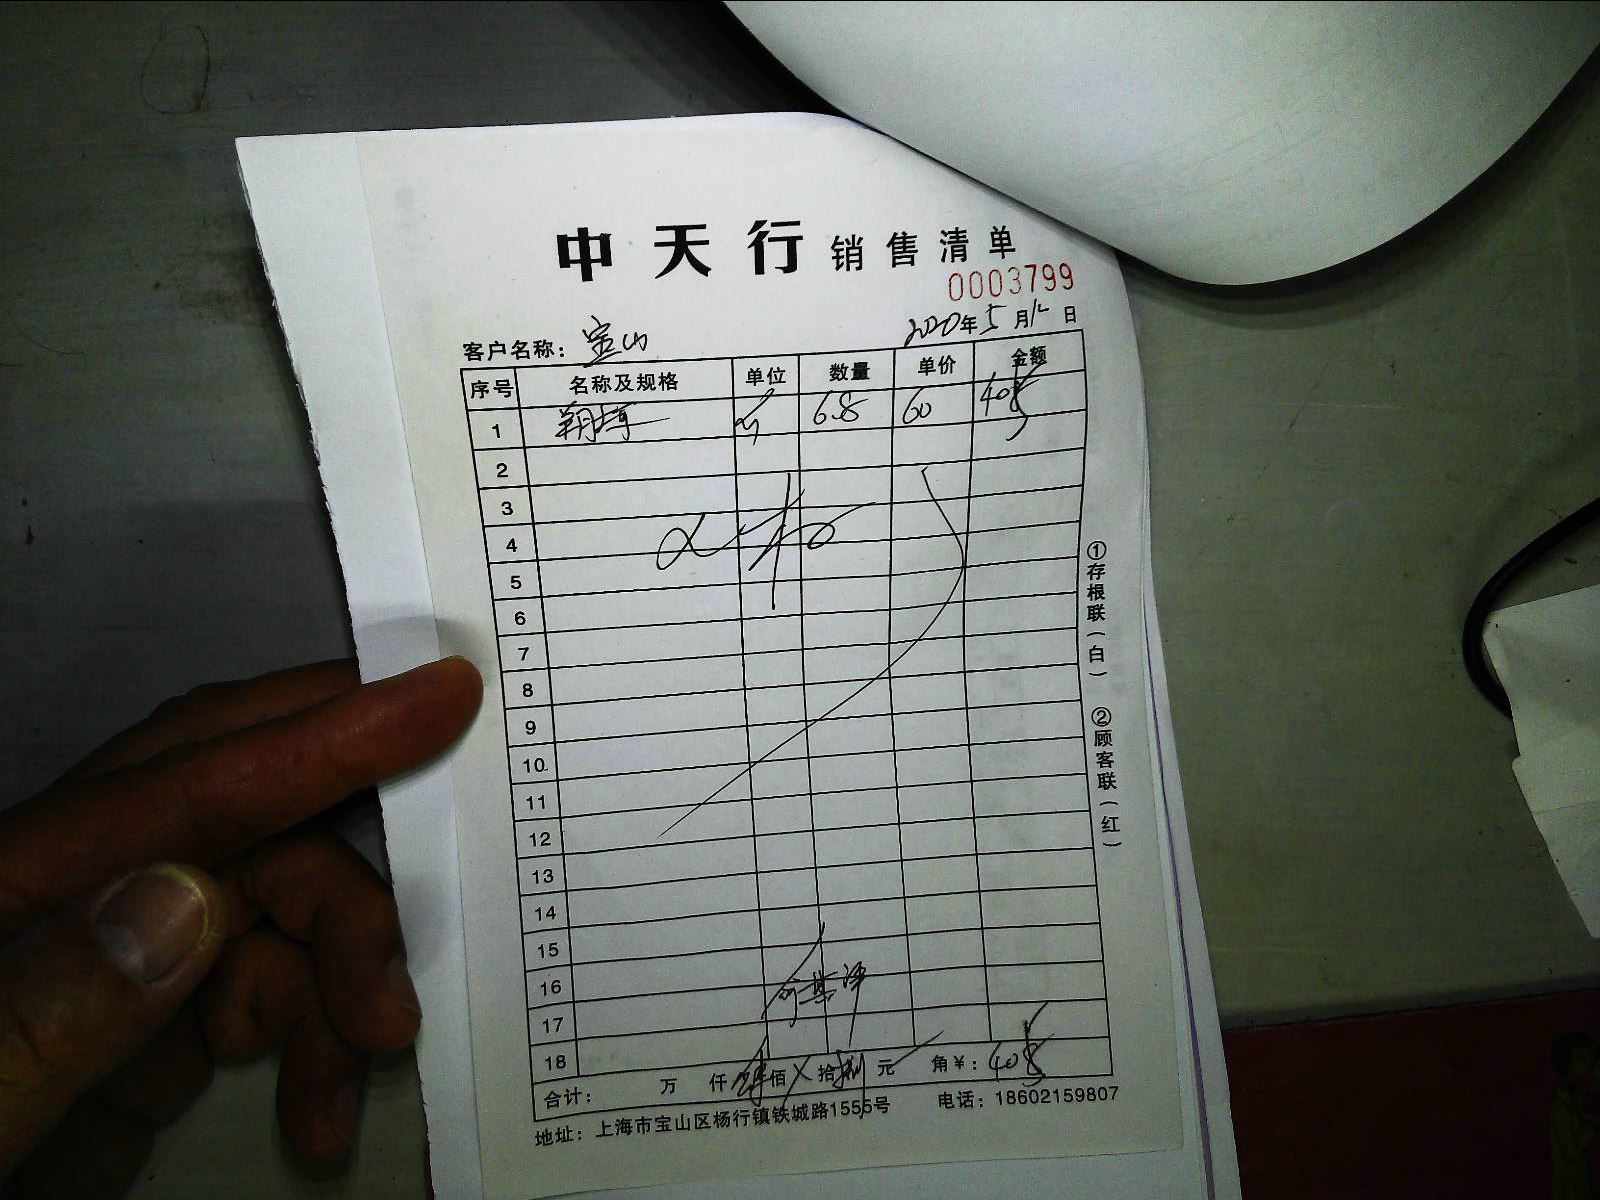 中天行 销售清单
0003799
客户名称： 宝山 2020年5月12日
序号 名称及规格 单位 数量 单价 金额
1 6.8 60 408
2
3
4
5
6
7
8
9
10
11
12
13
14
15
16
17
18
合计： 万 仟 肆佰 拾捌元 角￥：408
地址：上海市宝山区杨行镇铁城路1555号 电话：18602159807
①存根联（白） ②顾客联（红）